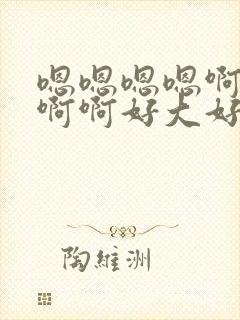 嗯嗯嗯嗯啊
啊啊好大好
陶維洲